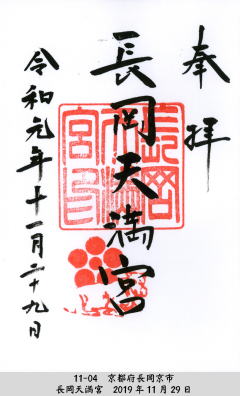 奉拝
長岡天満宮
令和元年十一月二十九日
長岡天満宮印
11-04　京都府長岡京市
長岡天満宮　2019年11月29日